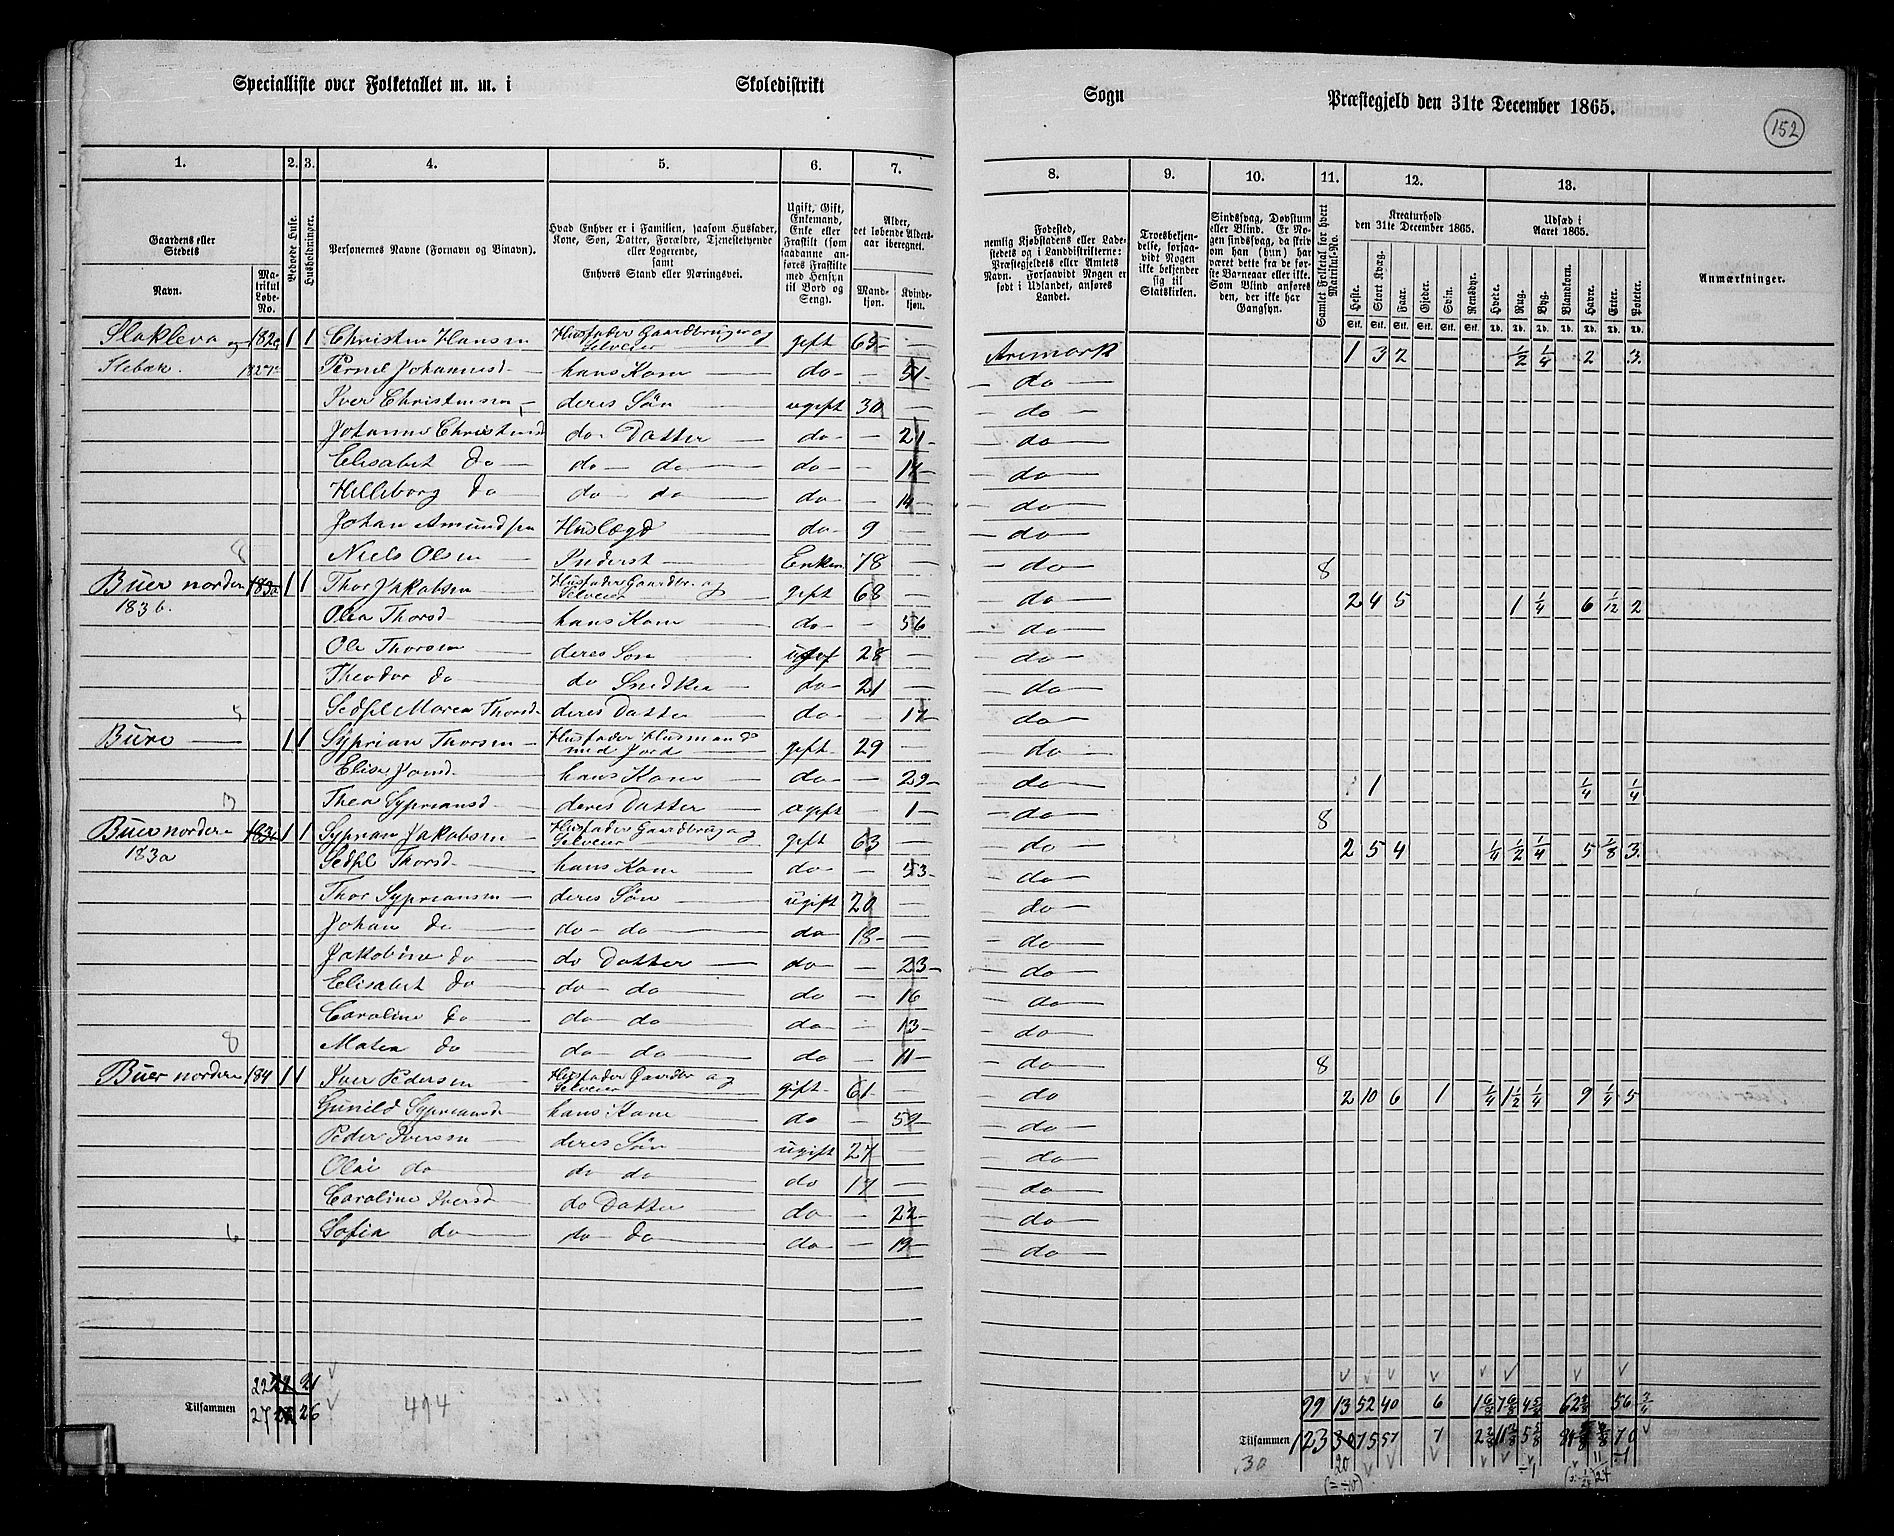 Specialliste over Folketallet m. m. i Skoledistrikt Sogn Præstegjeld den 31te December 1865.
152
1. 2. 3. 4. 5. 6. 7. 8. 9. 10. 11. 12. 13.
Gaardens eller Stedets
Navn.
Matrikul Løbe-No.
Beboede Huse.
Husholdninger.
Personernes Navne (Fornavn og Vinavn).
Hvad Enhver er i Familien, saasom Husfader, Kone, Søn, Datter, Forældre, Tjenestetyende eller Logerende, samt Enhvers Stand eller Næringsvei.
Ugift, Gift, Enkemand, Enke eller Fraskilt (som saadanne anføres Fraskilte med Hensyn til Bord og Seng).
Alder, det løbende Aldersaar iberegnet.
Mandkjøn. Kvindekjøn.
Fødested, nemlig Kjøbstadens eller Ladestedets og i Landdistrikterne: Præstegjeldets eller Amtets Navn. Forsaavidt Nogen er født i Udlandet, anføres Landet.
Troesbekjendelse, forsaavidt Nogen ikke bekjender sig til Statskirken.
Sindssvag, Døvstum eller Blind. Er Nogen sindssvag, da skriv om han (hun) har været dette fra de første Barneaar eller ikke. Som Blind anføres den, der ikke har Gangsyn.
Samlet Folketal for hvert Matrikuls-No.
Kreaturhold den 31te December 1865.
Heste. Stort Kvæg. Faar. Gjeder. Svin. Rensdyr.
Stk. Stk. Stk. Stk. Stk. Stk.
Udsæd i Aaret 1865.
Hvede. Rug. Byg. Blandkorn. Havre. Erter. Poteter.
Td. Td. Td. Td. Td. Td. Td.
Anmærkninger.
Slakleva og 182 1 1 Christen Hansen Husfader Gaardbruger og Selveier gift 65 — Aremark 1 3 2 1/2 1/4 2 3
Slebak. Pernil Johannesd hans Kone do — 51 do
Iver Christensen deres Søn ugift 30 — do
Johanne Christensd do Datter do — 21 do
Elisabet do do do do — 17 do
Helleborg do do do do — 14 do
Johan Amundsen Huslægd do 9 — do
8 Niels Olsen Inderst Enkem 78 — do 8
Buer nordre 183a 1 1 Thor Jakobsen Husfader Gaardbr og Selveier gift 68 — do 2 4 5 1 1/4 6 1/12 2
183b. Olea Thorsd hans Kone do — 56 do
Ole Thorsen deres Søn ugift 28 — do
Theodor do do Snedker do 21 — do
5 Sedsel Maren Thorsd deres Datter do — 17 do
Bure 1 1 Syprian Thorsen Husfader Husmand med Jord gift 29 — do
Elise Jonsd hans Kone do — 29 do 1 1/4 1/4
3 Thea Sypriansd deres Datter ugift — 1 do 8
Buer nordre 1 1 Syprian Jakobsen Husfader Gaardbrug og Selveier gift 63 — do 2 5 4 1/4 1/2 1/4 5 1/8 3
183a Sedsel Thorsd hans Kone do — 53 do
Thor Sypriansen deres Søn ugift 20 — do
Johan do do do do 18 — do
Jakobine do do Datter do — 23 do
Elisabet do do do do — 16 do
Caroline do do do do — 13 do
8 Matea do do do do — 11 do 8
Buer nordre 184 1 1 Iver Pedersen Husfader Gaardbr og Selveier gift 61 — do 2 10 6 1 1/4 1 1/2 1/4 9 1/4 5
Gunild Sypriansd hans Kone do — 59 do
Peder Iversen deres Søn ugift 27 — do
Olai do do do do 17 — do
Caroline Iversd do Datter do — 22 do
6 Sofia do do do do — 19 do
22 21 99 13 52 40 6 56
Tilsammen 27 26 494 Tilsammen 123 75 57 7 70
30 20